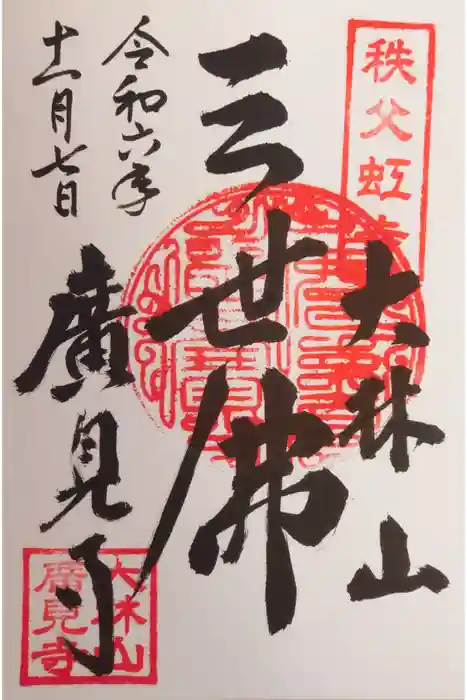 秩父虹寺
大林山
三世佛
令和六年
十一月七日
廣見寺
大林山
廣見寺